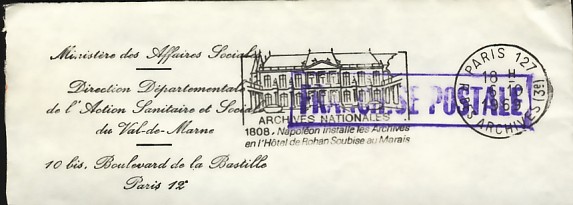 Ministère des Affaires Sociales
Direction Départementale
de l'Action Sanitaire et Sociale
du Val-de-Marne
10 bis, Boulevard de la Bastille
Paris 12e
ARCHIVES NATIONALES
1808. Napoléon installe les Archives
en l'Hôtel de Rohan Soubise au Marais
FRANCHISE POSTALE
PARIS 127
18 H
1968
R. DES ARCHIVES (3e)